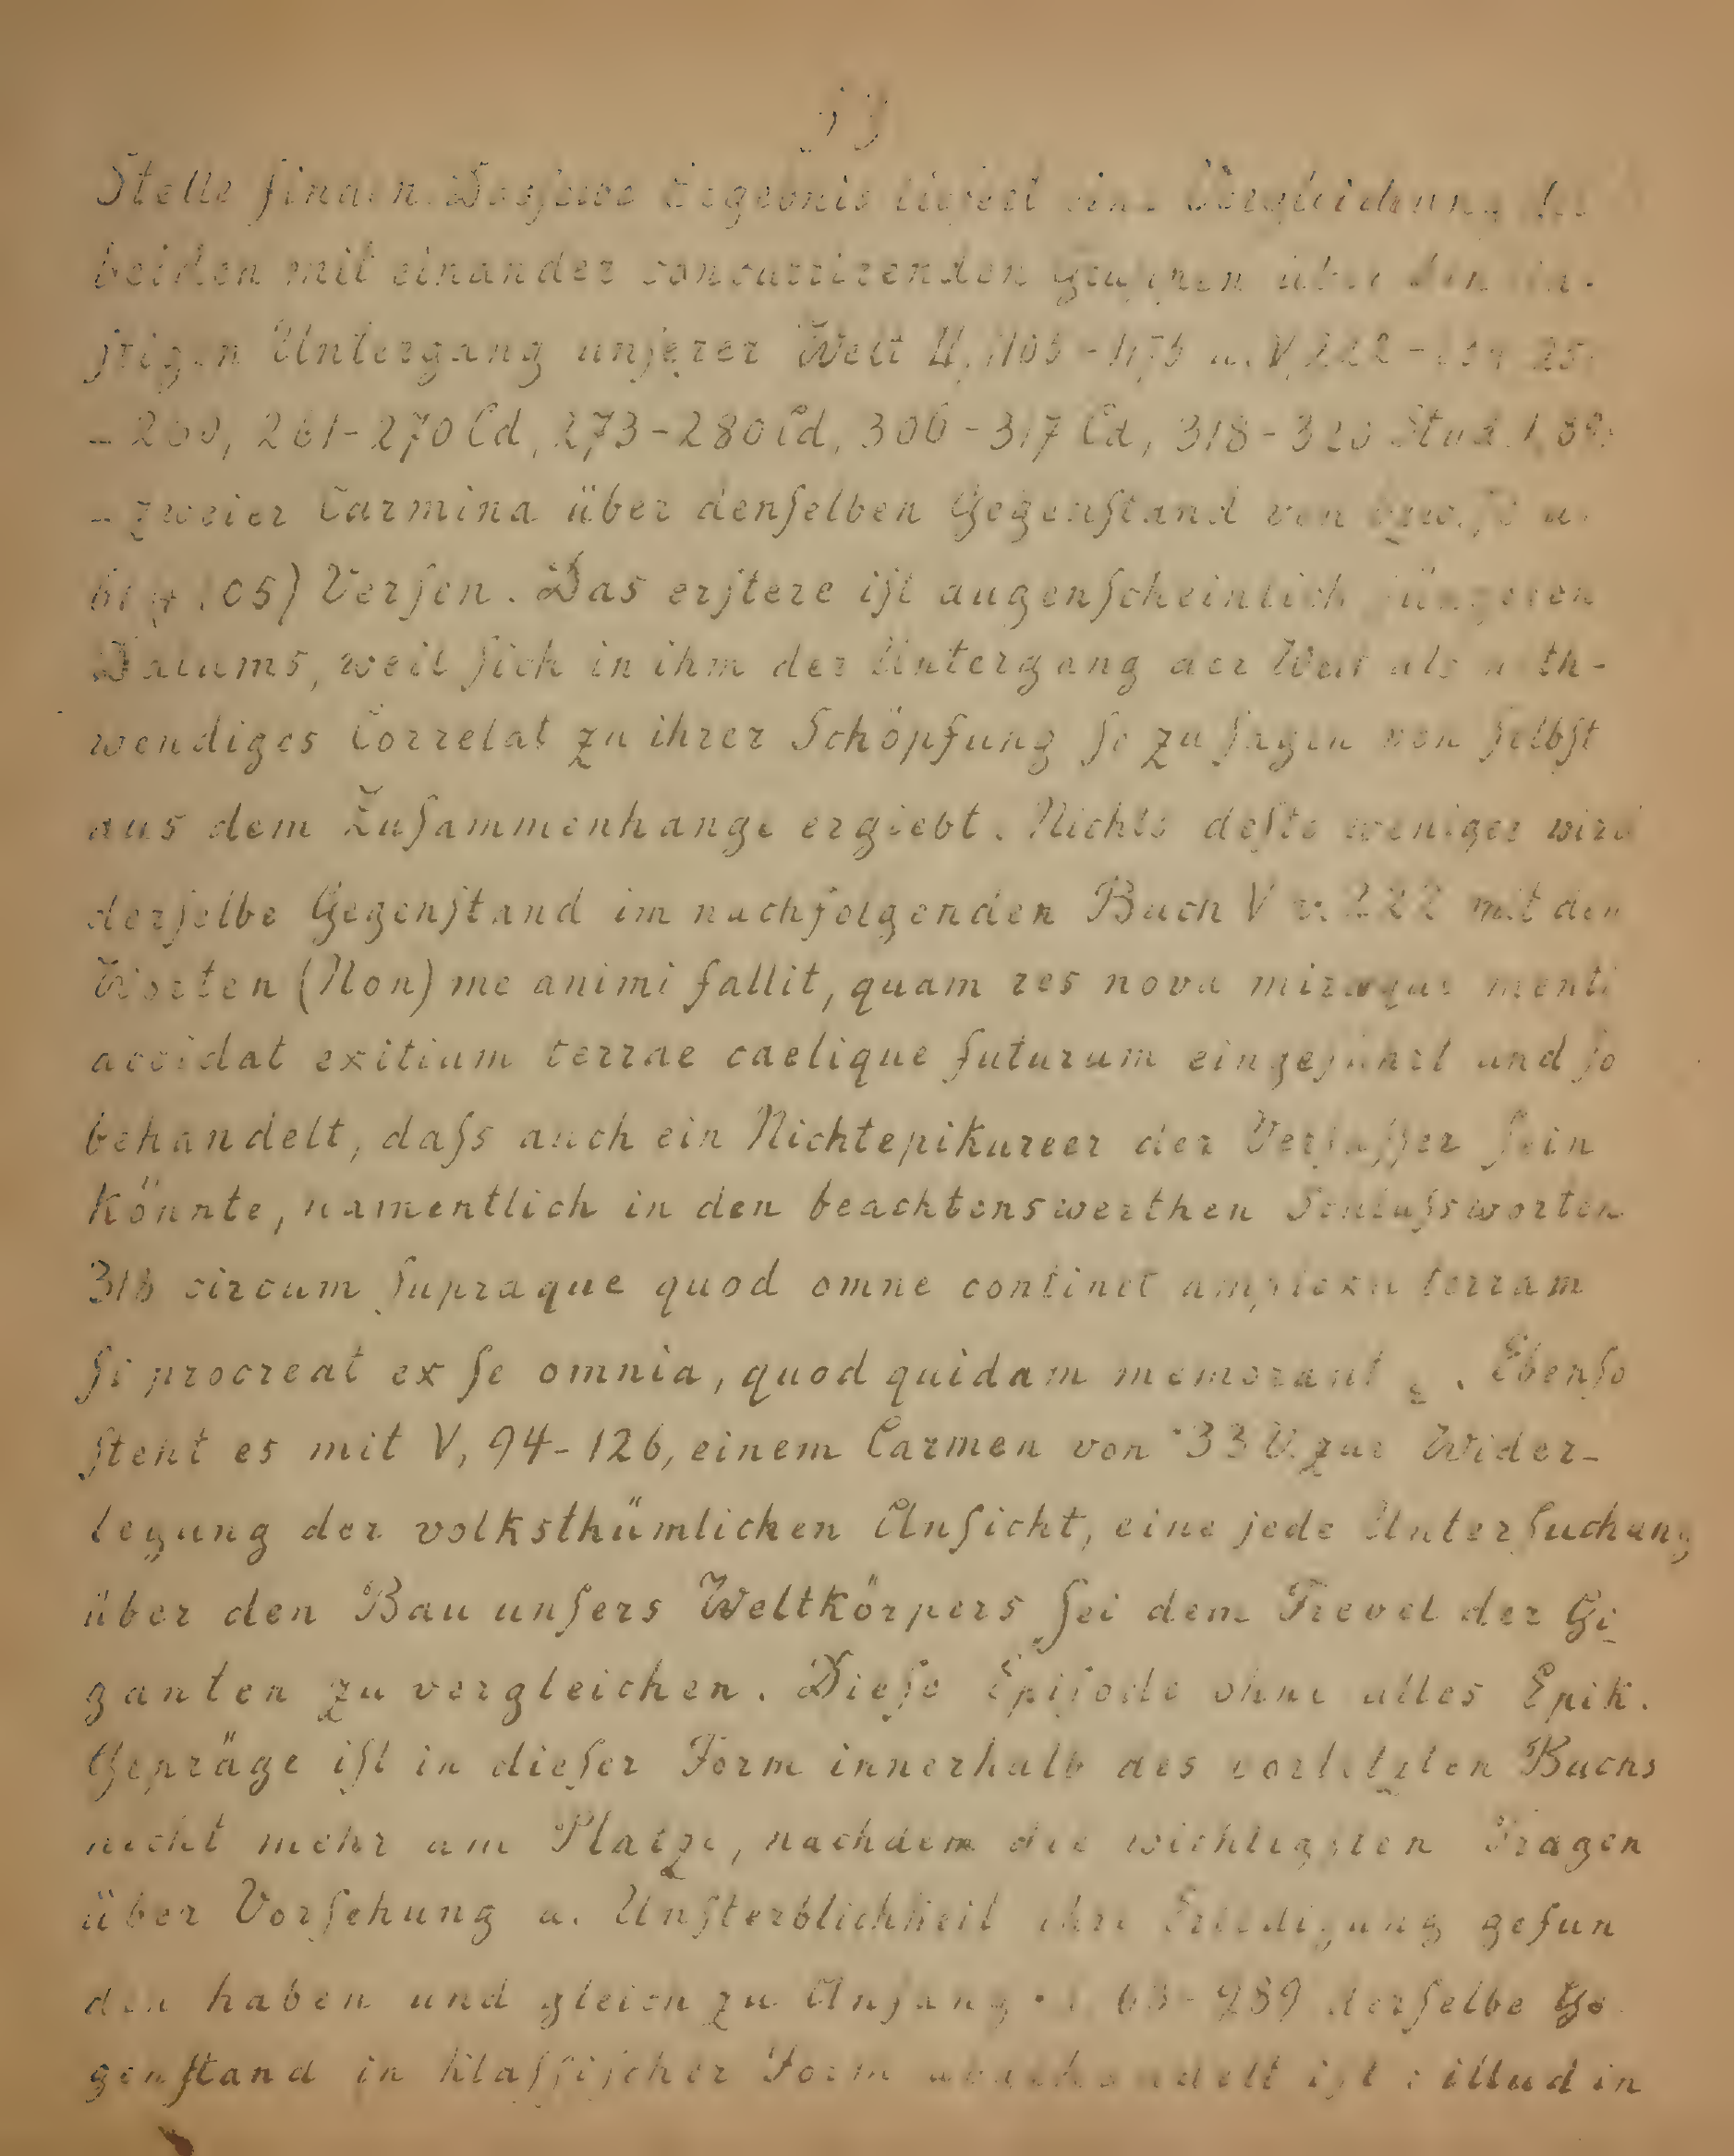 Stelle finden. Dasselbe Ergebnis liefert eine Vergleichung der
beiden mit einander concurrirenden Gruppen über den ein-
ſtigen Untergang unſerer Welt II, 1105-1175 u. V, 222-
- 260, 261-270 Cd, 273-280 Cd, 306-317 Cd, 318-323 Stud. I,
- zweier Carmina über denſelben Gegenſtand von u.
105) Verſen. Das erſtere iſt augenſcheinlich jüngeren
Datums, weil ſich in ihm der Untergang der Welt als noth-
wendiges Correlat zu ihrer Schöpfung ſo zu ſagen von ſelbſt
aus dem Zuſammenhange ergiebt. Nichts deſto weniger wird
derſelbe Gegenſtand im nachfolgenden Buch V v. 222 mit den
Worten (Non) me animi fallit, quam res nova miraque menti
accidat exitium terrae caelique futurum eingeführt und ſo
behandelt, daſs auch ein Nichtepikureer der Verfaſſer ſein
könnte, namentlich in den beachtenswerthen Schluſsworten
318 circum ſupraque quod omne continet amplexu terram
ſi procreat ex ſe omnia, quod quidam memorant . Ebenſo
ſteht es mit V, 94-126, einem Carmen von 33 V. zur Wider-
legung der volksthümlichen Anſicht, eine jede Unterſuchung
über den Bau unſers Weltkörpers ſei dem Frevel der Gi-
ganten zu vergleichen. Dieſe Epiſode ohne alles Epik.
Gepräge iſt in dieſer Form innerhalb des vorletzten Buchs
nicht mehr am Platze, nachdem die wichtigſten Fragen
über Vorſehung u. Unſterblichkeit ihre Erledigung gefun
den haben und gleich zu Anfang derſelbe Ge
genſtand in klaſſiſcher Form abgehandelt iſt : illud in